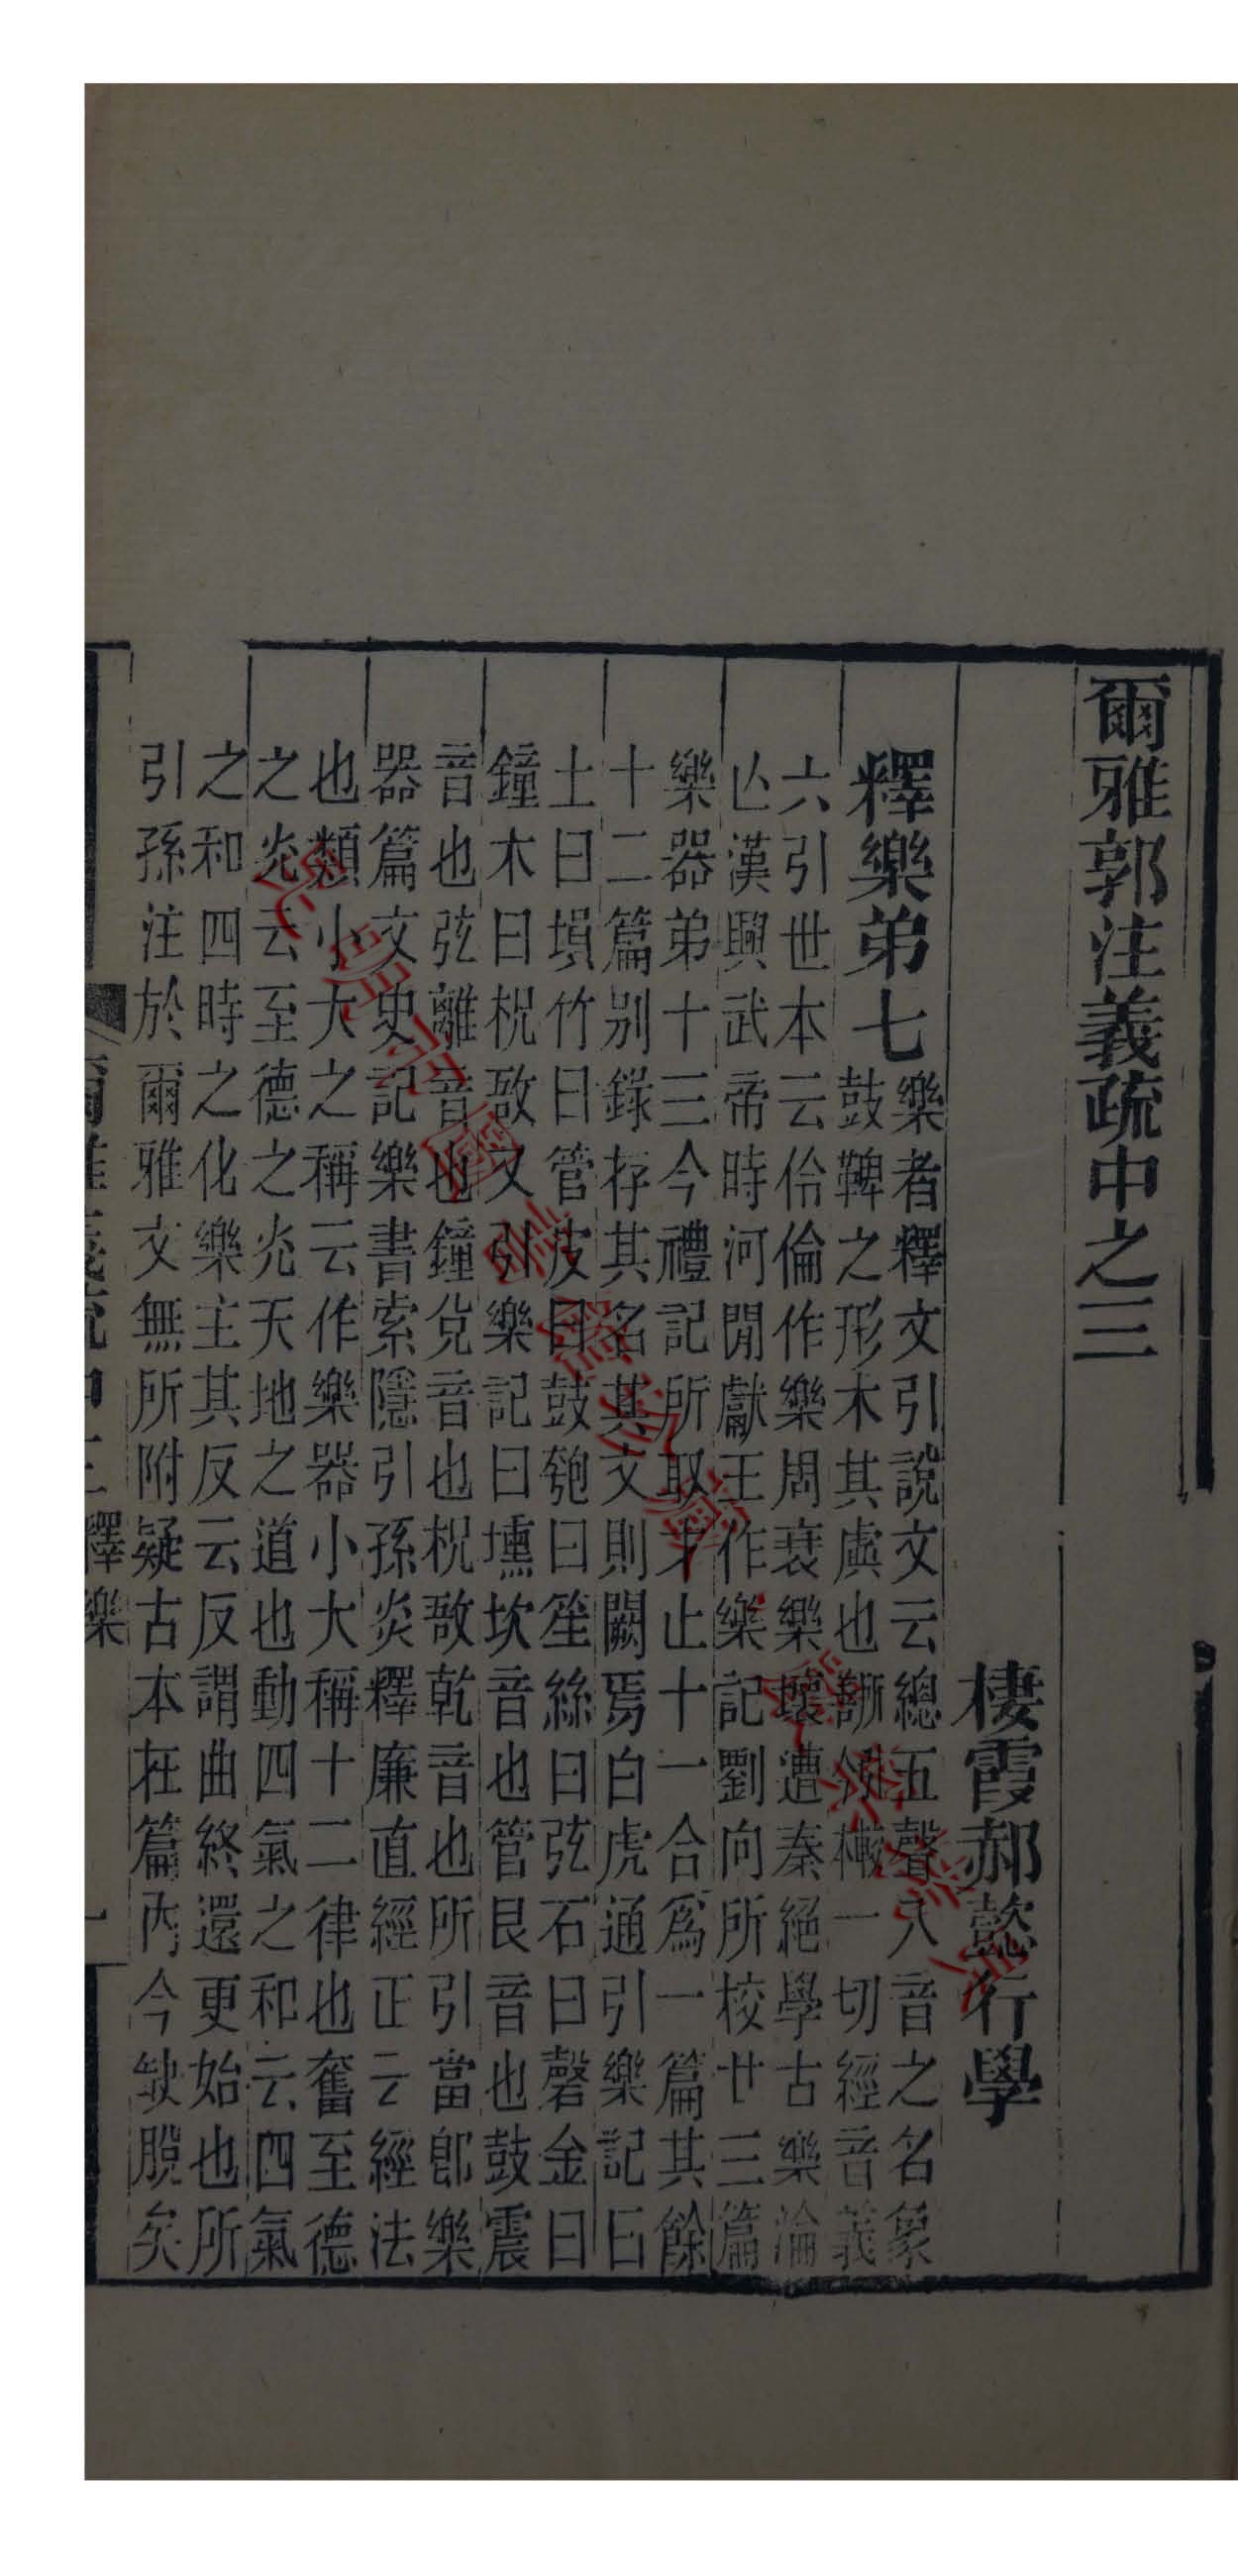 爾雅郭注義疏中之三
棲霞郝懿行學
釋樂弟七
樂者釋文引說文云總五聲八音之名象
鼓鞞之形木其虡也諸頌㰕一切經音義
六引世本云伶倫作樂周衰樂壞遭秦絕學古樂淪
亾漢興武帝時河閒獻王作樂記劉向所校廿三篇
樂器弟十三今禮記所取才止十一合爲一篇其餘
十二篇別錄存其名其文則闕焉白虎通引樂記曰
土曰塤竹曰管皮曰鼓匏曰笙絲曰弦石曰磬金曰
鐘木曰柷敔又引樂記曰壎坎音也管艮音也鼓震
音也弦離音也鐘兌音也柷敔乾音也所引當卽樂
器篇文史記樂書索隱引孫炎釋廉直經正云經法
也類小大之稱云作樂器小大稱十二律也奮至德
之光云至德之光天地之道也動四氣之和云四氣
之和四時之化樂主其反云反謂曲終還更始也所
引孫注於爾雅文無所附疑古本在篇內今缺脫矣
爾雅義疏中之三 釋樂 一